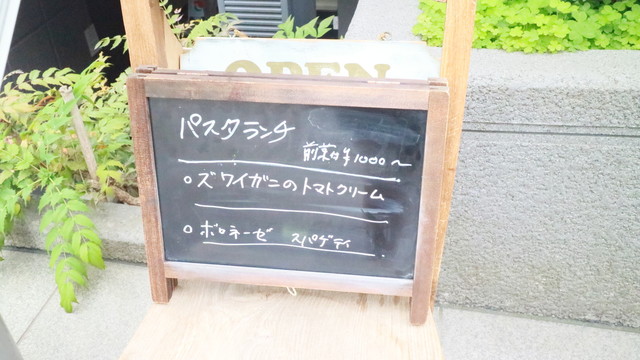 OPEN
パスタランチ
前菜付¥1000〜
○ズワイガニのトマトクリーム
○ボロネーゼ スパゲティ